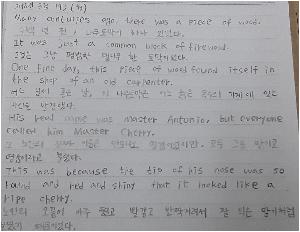 Many centuries ago, there was a piece of wood.
수백 년 전, 나무토막이 하나 있었다.
It was just a common block of firewood.
그것은 그냥 평범한 땔나무 한 토막이었다.
One fine day, this piece of wood found itself in
the shop of an old carpenter.
어느 날
His real name was master Antonio, but everyone
called him Master Cherry.
그 노인의 진짜 이름은
This was because the tip of his nose was so
round and red and shiny that it looked like a
ripe cherry.
노인의 코끝이 아주 둥글고 빨갛고 반짝거려서 잘 익은